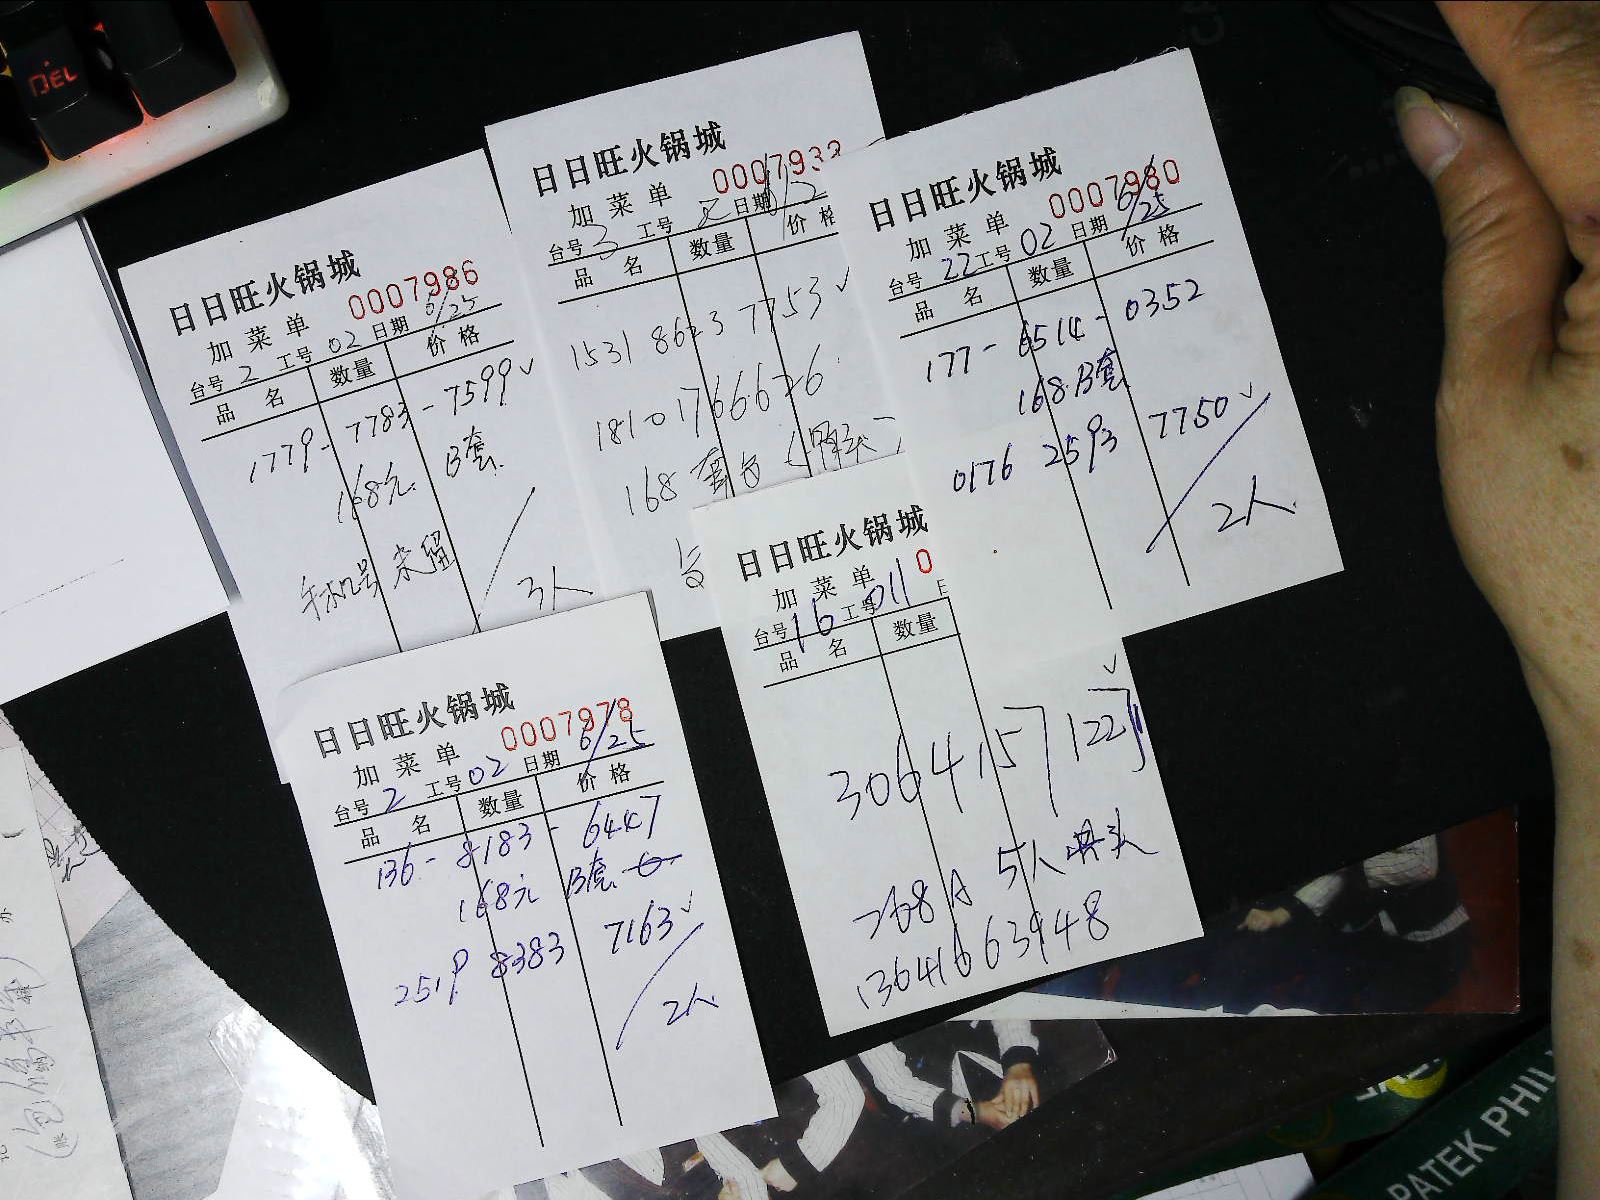 DEL
日日旺火锅城
加菜单 0007986
台号 2 工号 02 日期 6/25
品 名 数量 价 格
1779-7783-7599 ✓
168元. B套.
手机号 未留
3人
日日旺火锅城
加菜单 0007933
台号 3 工号 日期
品 名 数量 价 格
1531 8623 7753 ✓
18101766626
168 套
日日旺火锅城
加菜单 0007980
台号 22 工号 02 日期 6/25
品 名 数量 价 格
177-6514-0352
168.B套
0176 2593 7750 ✓
2人.
日日旺火锅城
加菜单 0007978
台号 2 工号 02 日期 6/25
品 名 数量 价 格
136-8183-6447
168元 B套
2519 8383 7163 ✓
2人
日日旺火锅城
加菜单 0
台号 16 工号 011
品 名 数量
✓
3064 157 122
768A 5人
13641663948
PATEK PHIL